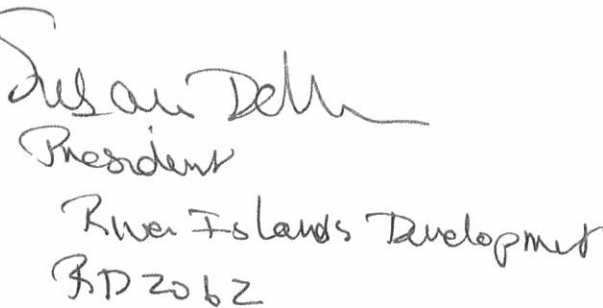 Susan Dell
President
River Islands Development
RD 2062